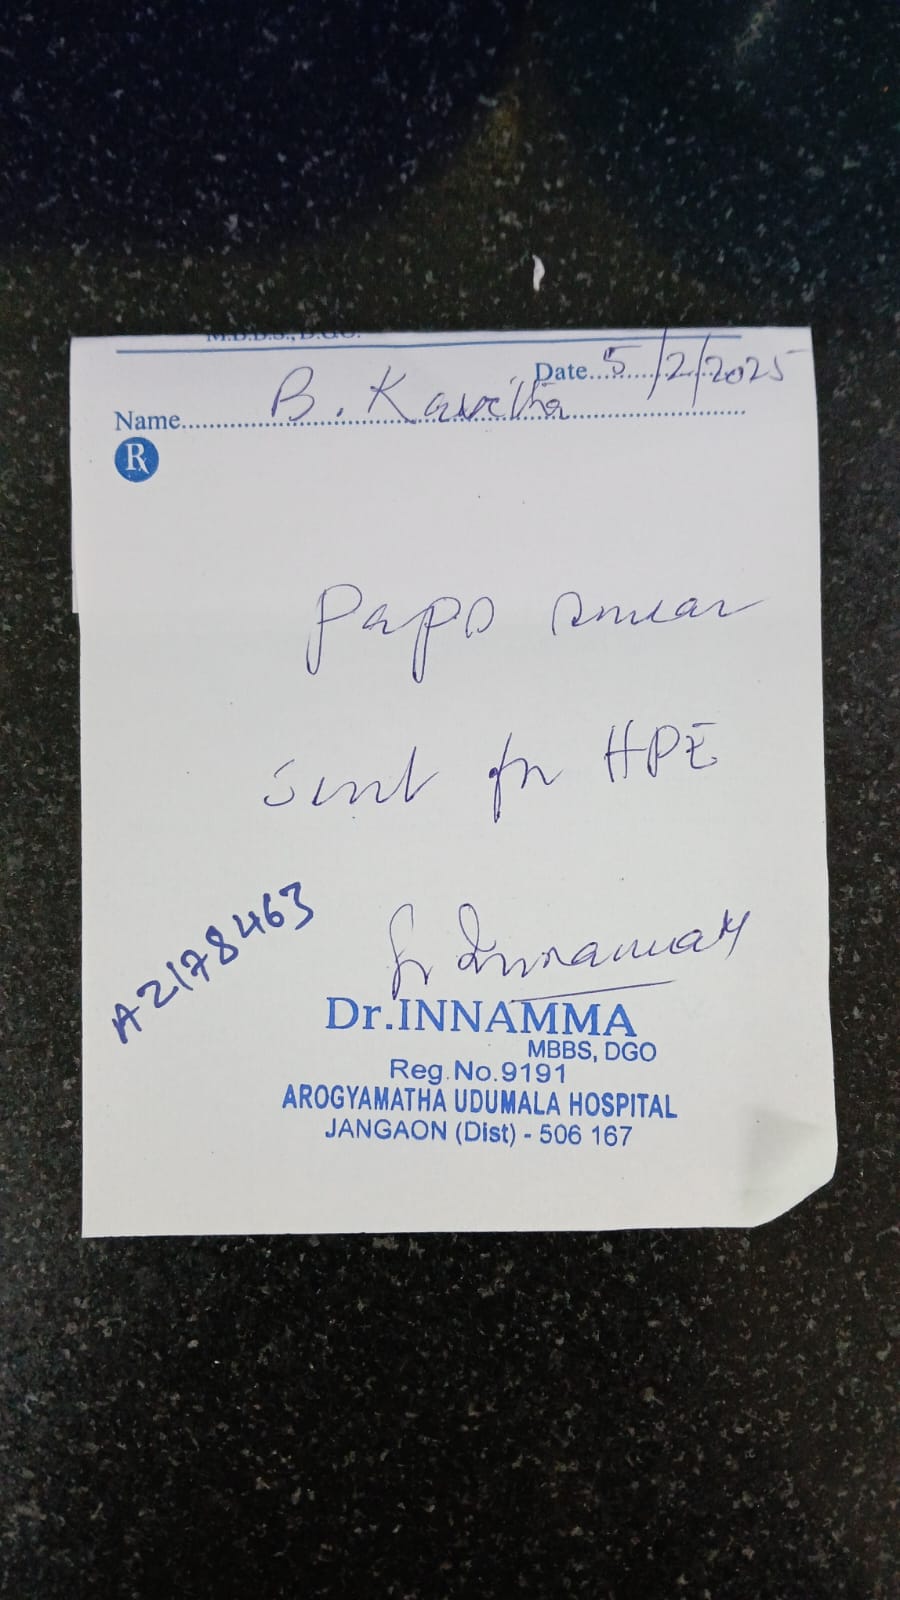 M.B.B.S., D.G.O.
Date...5/2/2025
Name...B. Kavitha
Rx
Paps smear
sent for HPE
A2178463
Dr Innamma
Dr.INNAMMA
MBBS, DGO
Reg.No.9191
AROGYAMATHA UDUMALA HOSPITAL
JANGAON (Dist) - 506 167